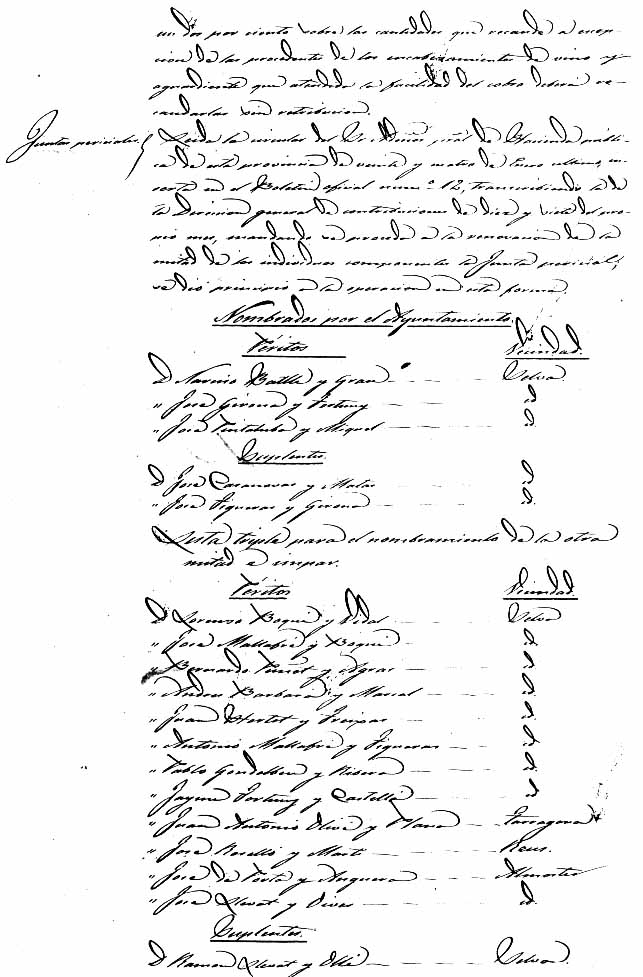 un dos por ciento sobre las cantidades que recaude a excep-
cion de las procedentes de los encabezamientos de vino y
aguardiente que atendida la facilidad del cobro deberá re-
caudarlas sin retribucion.
Juntas periciales.
Leida la circular del Sr. Admor. pral. de Hacienda públi-
ca de esta provincia de veinte y cuatro de Enero ultimo, in-
serta en el Boletin oficial num.º 12, transcribiendo la de
la Direccion general de contribuciones de diez y siete del pro-
pio mes, mandando se proceda a la renovacion de la
mitad de los individuos componentes la Junta pericial,
se dió principio a la operacion en esta forma.
Nombrados por el Ayuntamiento.
Péritos Vecindad.
D Narciso Batlle y Grau Selva
" José Girona y Fortuny id.
" José y Miquel id.
Suplentes.
D José Casanovas y Mallas id.
" José Figueras y Girona id.
Lista triple para el nombramiento de la otra
mitad e impar.
Péritos Vecindad.
D Lorenzo Boqué y Vidal Selva
" José Mallafré y Boqué id.
" Bernardo y id.
" Andres Barbará y Marcal id.
" Juan y id.
" Antonio Mallafré y Figueras id.
" Pablo y Ribera id.
" Jayme Fortuny y Castellá id.
" Juan Antonio Olivé y Tarragona
" José Roselló y Marti Reus.
" José de Porta y Anguera Almoster
" José Llevat y id.
Suplentes.
D Ramon Llevat y Ollé Selva